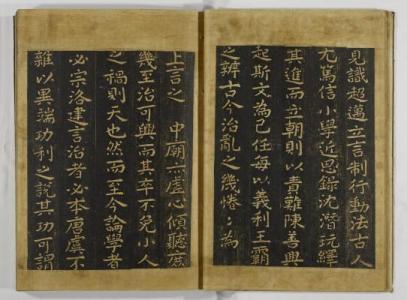 見識超邁立言制行動法古人
尤篤信小學近思錄沈潛玩繹
其進而立朝則以責難陳善興
起斯文為己任每以義利王霸
之辨古今治亂之幾惓〻為
上言之　中廟亦虛心傾聽庶
幾至治可興而其卒不免小人
之禍則天也然而至今論學者
必宗洛建言治者必本唐虞不
雜以異端功利之說其功可謂